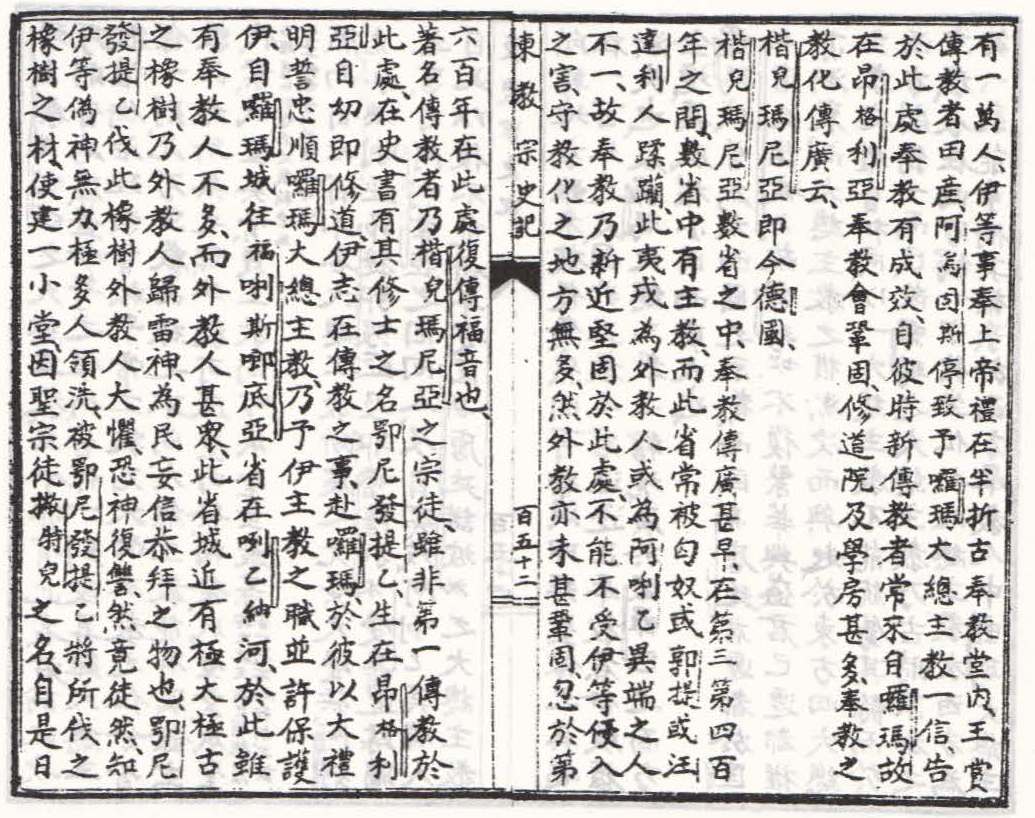 有一萬人、伊等事奉上帝禮在半折古奉教堂內、王賞
傳教者田產、阿烏固斯停致予囉瑪大總主教一信、告
於此處奉教有成效、自彼時新傳教者常來自羅瑪、故
在昂格利亞奉教會鞏固、修道院及學房甚多、奉教之
教化傳廣云、
楷兒瑪尼亞即今德國、
楷兒瑪尼亞數省之中、奉教傳廣甚早、在第三第四百
年之間、數省中有主教、而此省常被匈奴或郭提或汪
達利人蹂躪、此夷戎為外教人或為阿唎乙異端之人
不一、故奉教乃新近堅固於此處、不能不受伊等侵入
之害、守教化之地方無多、然外教亦未甚鞏固、忽於第
東教宗史記
百五十二
六百年在此處復傳福音也、
著名傳教者乃楷兒瑪尼亞之宗徒、雖非第一傳教於
此處、在史書有其修士之名鄂尼發提乙、生在昂格利
亞自幼即修道伊志在傳教之事、赴囉瑪、於彼以大禮
明誓忠順囉瑪大總主教、乃予伊主教之職並許保護
伊、自囉瑪城往福唎斯啷底亞省在唎乙納河、於此雖
有奉教人不多、而外教人甚衆、此省城近有極大極古
之橡樹、乃外教人歸雷神、為民妄信恭拜之物也、鄂尼
發提乙伐此橡樹外教人大懼、恐神復讐、然竟徒然、知
伊等偽神無力、極多人領洗、被鄂尼發提乙將所伐之
橡樹之材、使建一小堂因聖宗徒撒特兒之名、自是日